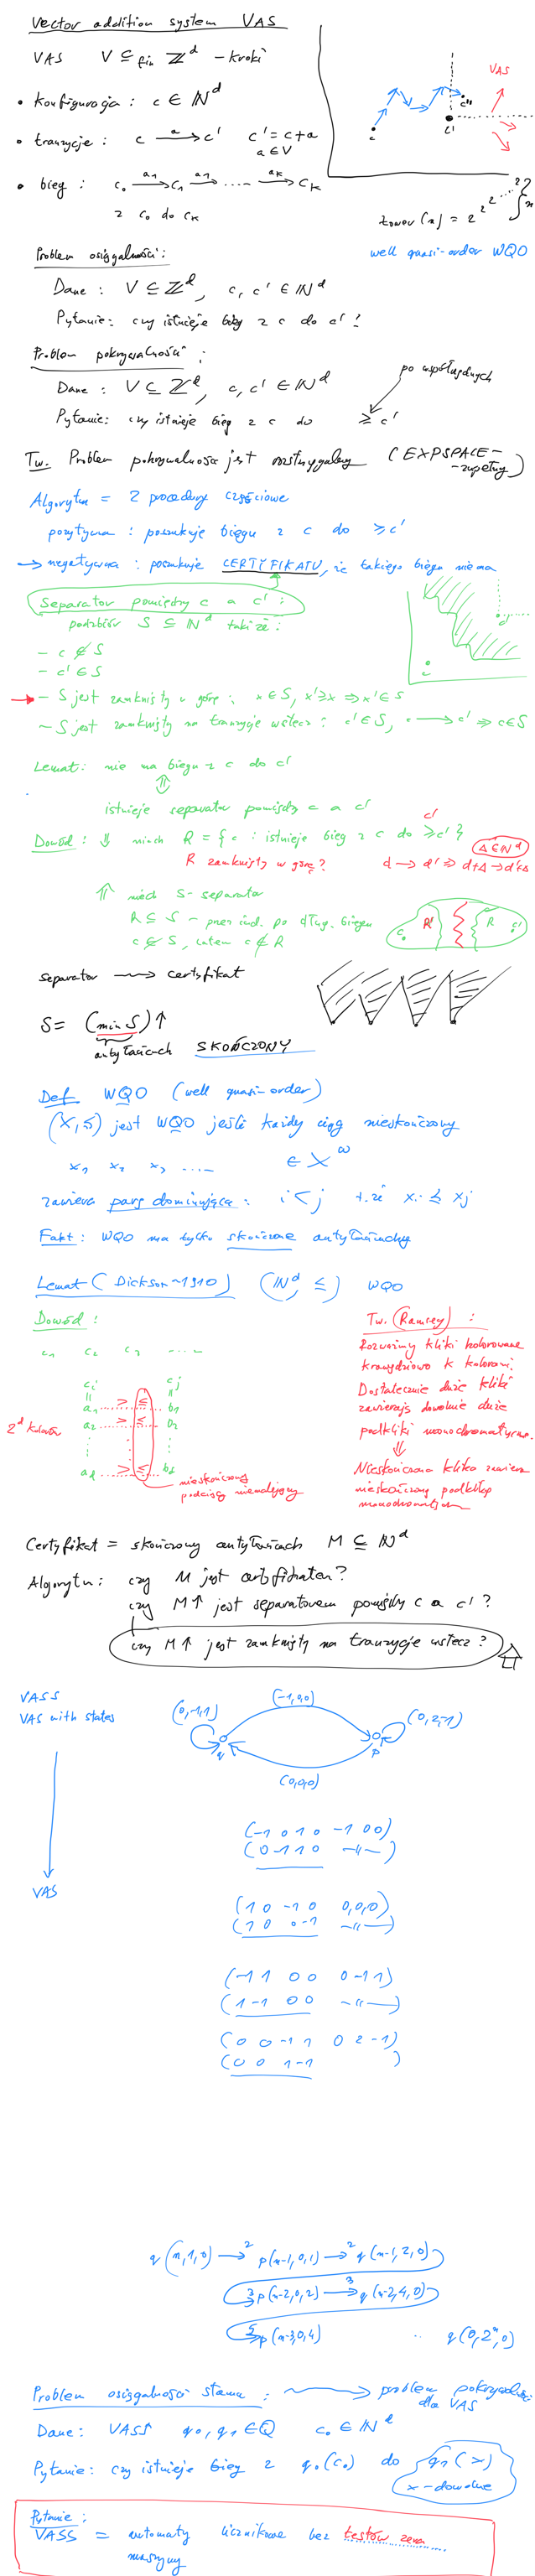 Vector addition system VAS
VAS V ⊆fin ℤ^d - kroki
• konfiguracja : c ∈ ℕ^d
• tranzycje : c —a→ c' c' = c + a
a ∈ V
• bieg : c₀ —a₁→ c₁ —a₁→ ---- —ak→ ck
z c₀ do ck
VAS
c
c'
c''
tower(n) = 2^2^2^...^2 } n
well quasi-order WQO
Problem osiągalności :
Dane : V ⊆ ℤ^d, c, c' ∈ ℕ^d
Pytanie : czy istnieje bieg z c do c' ?
Problem pokrywalności :
Dane : V ⊆ ℤ^d, c, c' ∈ ℕ^d
po współrzędnych
Pytanie : czy istnieje bieg z c do ≥ c'
Tw. Problem pokrywalności jest rozstrzygalny (EXPSPACE-
-zupełny)
Algorytm = 2 procedury częściowe
pozytywna : poszukuje biegu z c do ≥ c'
→ negatywna : poszukuje CERTYFIKATU, że takiego biegu nie ma
Separator pomiędzy c a c' :
podzbiór S ⊆ ℕ^d taki że :
- c ∉ S
- c' ∈ S
→ - S jest zamknięty w górę : x ∈ S, x' ≥ x ⇒ x' ∈ S
- S jest zamknięty na tranzycje wstecz : c' ∈ S, c → c' ⇒ c ∈ S
Lemat : nie ma biegu z c do c'
⇕
istnieje separator pomiędzy c a c'
Dowód : ⇓ niech R = { c : istnieje bieg z c do ≥ c' }
R zamknięty w górę ? d → d' ⇒ d+Δ → d'+Δ
Δ ∈ ℕ^d
⇑ niech S - separator
R ⊆ S - przez ind. po dług. biegu
c ∉ S, zatem c ∉ R
c R' R c'
separator ⟿ certyfikat
S = (min S)↑
antyłańcuch SKOŃCZONY
Def WQO (well quasi-order)
(X, ≤) jest WQO jeśli każdy ciąg nieskończony
x₁ x₂ x₃ .... ∈ X^ω
zawiera parę dominującą : i < j t. że xi ≤ xj
Fakt : WQO ma tylko skończone antyłańcuchy
Lemat (Dickson ~1910) (ℕ^d, ≤) WQO
Dowód :
c₁ c₂ c₃ ....
ci cj
|| ||
a₁ ..... > ≤ ..... b₁
2^d kolorów a₂ ..... > ≤ ..... b₂
ad ..... > ≤ ..... bd
nieskończony
podciąg niemalejący
Tw. (Ramsey) :
Rozważmy kliki kolorowane
krawędziowo k kolorami.
Dostatecznie duże kliki
zawierają dowolnie duże
podkliki monochromatyczne.
⇓
Nieskończona klika zawiera
nieskończoną podklikę
monochromatyczną
Certyfikat = skończony antyłańcuch M ⊆ ℕ^d
Algorytm : czy M jest certyfikatem ?
czy M↑ jest separatorem pomiędzy c a c' ?
czy M↑ jest zamknięty na tranzycje wstecz ?
VASS
VAS with states
VAS
(0,-1,1) (-1,0,0) (0,2,-1)
q p
(0,0,0)
(-1 0 1 0 -1 0 0)
(0 -1 1 0 —"—)
(1 0 -1 0 0,0,0)
(1 0 0 -1 —"—)
(-1 1 0 0 0 -1 1)
(1 -1 0 0 —"—)
(0 0 -1 1 0 2 -1)
(0 0 1 -1 )
q(n,1,0) →² p(n-1,0,1) →² q(n-1,2,0)
→³ p(n-2,0,2) →³ q(n-2,4,0)
→⁵ p(n-3,0,4) .. q(0,2^n,0)
Problem osiągalności stanu : ⟿ problem pokrywalności
dla VAS
Dane : VASS q₀, q₁ ∈ Q c₀ ∈ ℕ^d
Pytanie : czy istnieje bieg z q₀(c₀) do q₁(x)
x - dowolne
Pytanie :
VASS = automaty licznikowe bez testów zera ....
maszyny